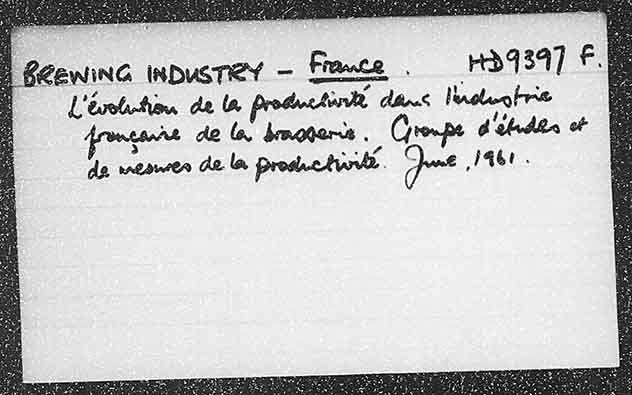 BREWING INDUSTRY – France. HD9397 F.
L'évolution de la productivité dans l'industrie
française de la brasserie. Groupe d'études et
de mesures de la productivité. June, 1961.